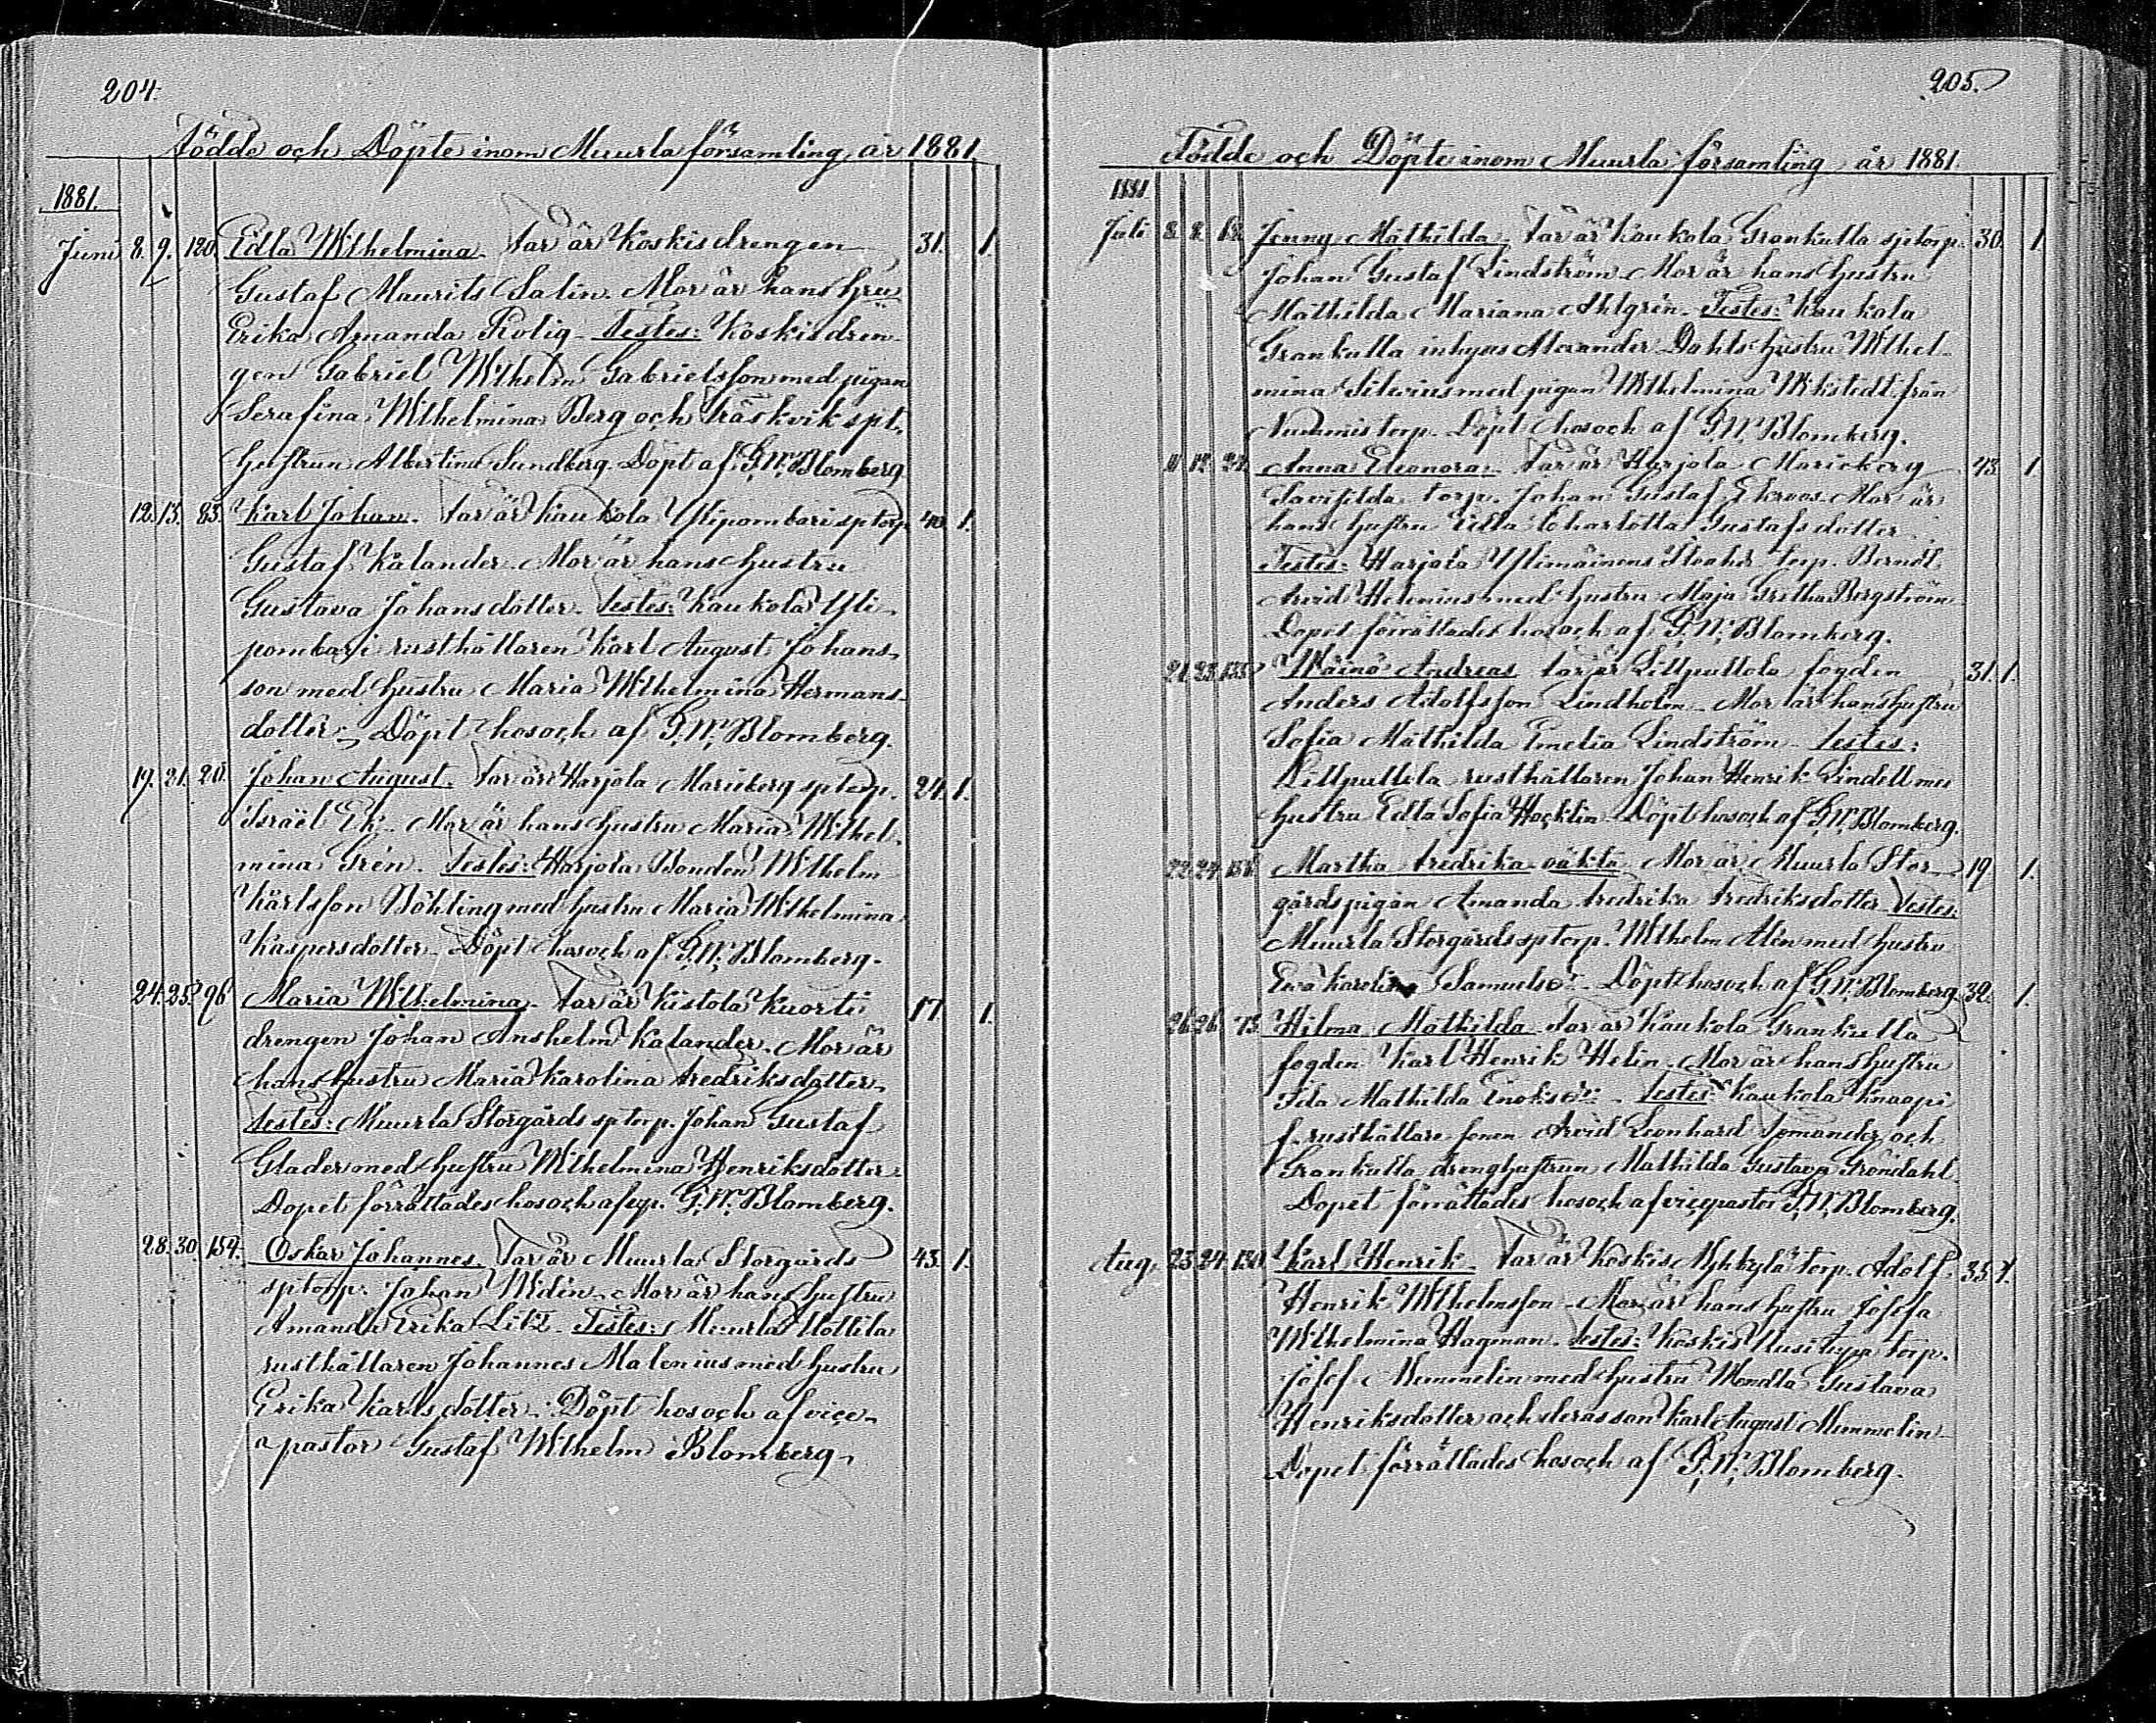 204.
Födde och Döpte inom Muurla församling år 1881
1881.
Juni 8. 9. 120. Edla Wilhelmina. Far är Koskis drengen 31. 1.
Gustaf Maurits Salin. Mor är hans hru
Erika Amanda Rolig. Testes: Koskis drän-
gen Gabriel Wilhelm Gabrielsson med pigan
Serafina Wilhelmina Berg och Träskvik spt.
hustrun Albertina Sundberg. Döpt af G. W. Blomberg
12. 13. 83. Karl Johan. Far är Kaukola Ylipombari sp torp. 40. 1.
Gustaf Kalander. Mor är hans hustru
Gustava Johansdotter. Testes: Kaukola Yli-
pombari rusthållaren Karl August Johans-
son med hustru Maria Wilhelmina Hermans-
dotter. Döpt hos och af G. W. Blomberg.
19. 21. 20. Johan August. Far är Harjola Marieberg sp torp. 24. 1.
Israël Ek. Mor är hans hustru Maria Wilhel-
mina Grén. Testes: Harjola Bonden Wilhelm
Karlsson Böhling med hustru Maria Wilhelmina
Kaspersdotter. Döpt hos och af G. W. Blomberg.
24. 25. 96 Maria Wilhelmina. Far är Kistola Kuorti 17. 1.
drengen Johan Anshelm Kalander. Mor är
hans hustru Maria Karolina Fredriksdotter.
Testes: Muurla Storgårds sp torp. Johan Gustaf
Glader med hustru Wilhelmina Henriksdotter.
Dopet förrättades hos och af vp. G. W. Blomberg.
28. 30. 154. Oskar Johannes. Far är Muurla Storgårds 43. 1.
sp torp. Johan Widén. Mor är hans hustru
Amanda Erika Litz. Testes: Muurla Uottila
rusthållaren Johannes Malenius med hustru
Erika Karlsdotter. Döpt hos och af vice-
pastor Gustaf Wilhelm Blomberg.
205.
Födde och Döpte inom Muurla församling år 1881.
1881.
Juli 8. 8. Jenny Mathilda. Far är Kaukola Grankulla sp torp. 30. 1.
Johan Gustaf Lindström. Mor är hans hustru
Mathilda Mariana Ahlgrén. Testes: Kaukola
Grankulla inhyses Alexander Dahls hustru Wilhel-
mina Silenius med pigan Wilhelmina Wikstedt från
Nummis torp. Döpt hos och af G. W. Blomberg.
11. 12. 24. Anna Eleonora. Far är Harjola Marieberg 43. 1.
torp. Johan Gustaf Ekroos. Mor är
hans hustru Edla Charlotta Gustafsdotter.
Testes: Harjola torp. Berndt
Arvid Helenius med hustru Maja Gretha Bergström.
Dopet förrättades hos och af G. W. Blomberg.
21. 23. 135. Wäinö Andreas. Far är Lillpullola fogden 31. 1.
Anders Adolfsson Lindholm. Mor är hans hustru
Sofia Mathilda Emelia Lindström. Testes:
Lillpullola rusthållaren Johan Henrik Lindell med
hustru Edla Sofia Hocklin. Döpt hos och af G. W. Blomberg.
22. 24. Martha Fredrika oäkta. Mor är Muurla Stor- 19. 1.
gårds pigan Amanda Fredrika Fredriksdotter. Testes:
Muurla Storgårds sp torp. Wilhelm Alén med hustru
Ewa Karolina Samuels dr. Döpt hos och af G. W. Blomberg.
26. 26. 73. Hilma Mathilda. Far är Kaukola Grankulla 32. 1.
fogden Karl Henrik Helin. Mor är hans hustru
Ida Mathilda Enoks dr. Testes: Kaukola Knaapi
f. rusthållare sonen Arvid Leonhard och
Grankulla dreng hustrun Mathilda Gustava Gröndahl
Dopet förrättades hos och af vicepastor G. W. Blomberg.
Aug. 23. 24. 130. Karl Henrik. Far är Koskis Myhkylä torp. Adolf 35. 1.
Henrik Wilhelmsson. Mor är hans hustru Josefa
Wilhelmina Hagman. Testes: Koskis Uusitupa torp.
Josef Memmelin med hustru Wendla Gustava
Henriksdotter och deras son Karl August Memmelin
Dopet förrättades hos och af G. W. Blomberg.